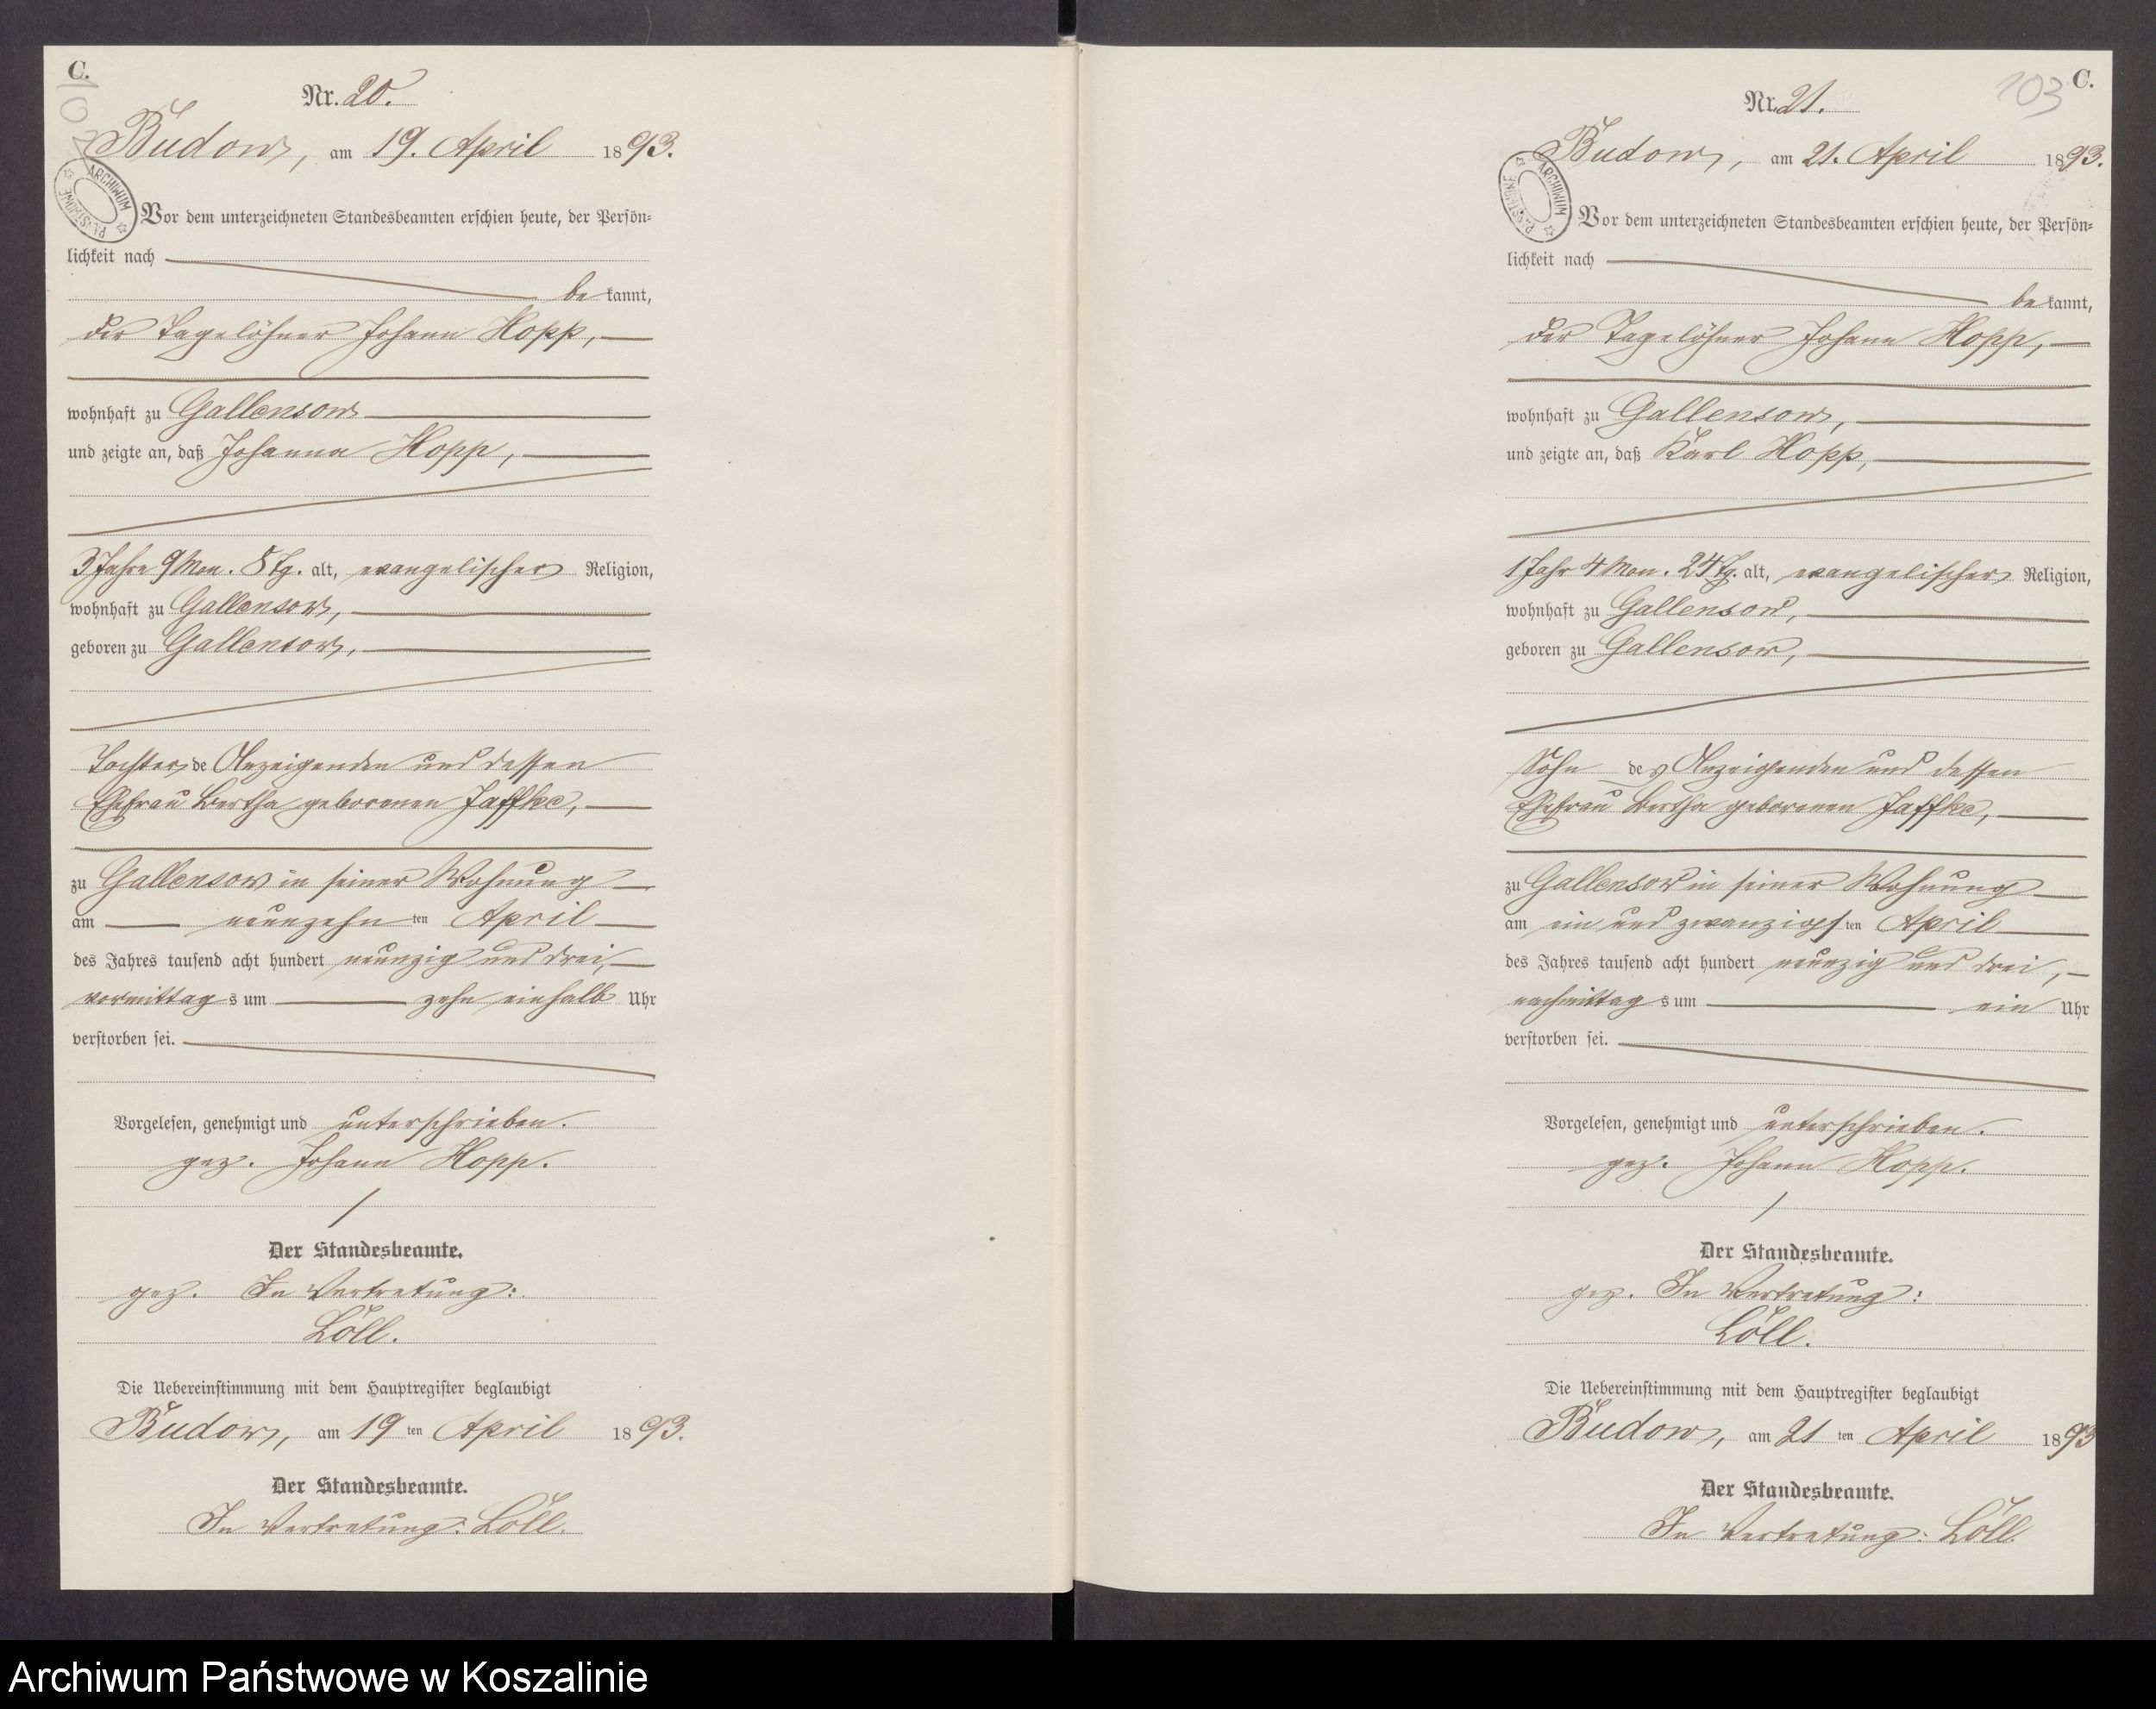 C.
102
Nr. 20.
Budow, am 19. April 1893.
ARCHIWUM PAŃSTWOWE
Vor dem unterzeichneten Standesbeamten erschien heute, der Persön-
lichkeit nach
be kannt,
der Tagelöhner Johann Hopp,
wohnhaft zu Gallensow
und zeigte an, daß Johanna Hopp,
3 Jahre 9 Mon. 8 Tg. alt, evangelischer Religion,
wohnhaft zu Gallensow,
geboren zu Gallensow,
Tochter de Anzeigenden und dessen
Ehefrau Bertha geborenen Jaffke,
zu Gallensow in seiner Wohnung
am neunzehn ten April
des Jahres tausend acht hundert neunzig und drei,
vormittag s um zehn einhalb Uhr
verstorben sei.
Vorgelesen, genehmigt und unterschrieben.
gez. Johann Hopp.
Der Standesbeamte.
gez. In Vertretung:
Löll.
Die Uebereinstimmung mit dem Hauptregister beglaubigt
Budow, am 19 ten April 1893.
Der Standesbeamte.
In Vertretung: Löll.
C.
103
Nr. 21.
Budow, am 21. April 1893.
ARCHIWUM PAŃSTWOWE
Vor dem unterzeichneten Standesbeamten erschien heute, der Persön-
lichkeit nach
be kannt,
der Tagelöhner Johann Hopp,
wohnhaft zu Gallensow,
und zeigte an, daß Karl Hopp,
1 Jahr 4 Mon. 24 Tg. alt, evangelischer Religion,
wohnhaft zu Gallensow,
geboren zu Gallensow,
Sohn des Anzeigenden und dessen
Ehefrau Bertha geborenen Jaffke,
zu Gallensow in seiner Wohnung
am ein und zwanzigs ten April
des Jahres tausend acht hundert neunzig und drei,
nachmittag s um ein Uhr
verstorben sei.
Vorgelesen, genehmigt und unterschrieben.
gez. Johann Hopp.
Der Standesbeamte.
gez. In Vertretung:
Löll.
Die Uebereinstimmung mit dem Hauptregister beglaubigt
Budow, am 21 ten April 1893
Der Standesbeamte.
In Vertretung: Löll
Archiwum Państwowe w Koszalinie